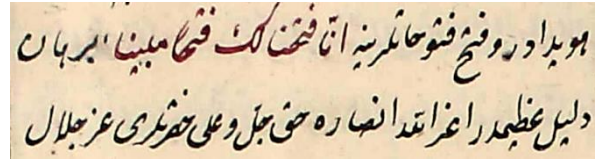 هويدادر و فتح فتوحاتلرينه انا فتحنا لك فتحا مبينا برهان
دليل عظيمدر اعز الله انصاره حق جل و على حضرتلرى عز جلال